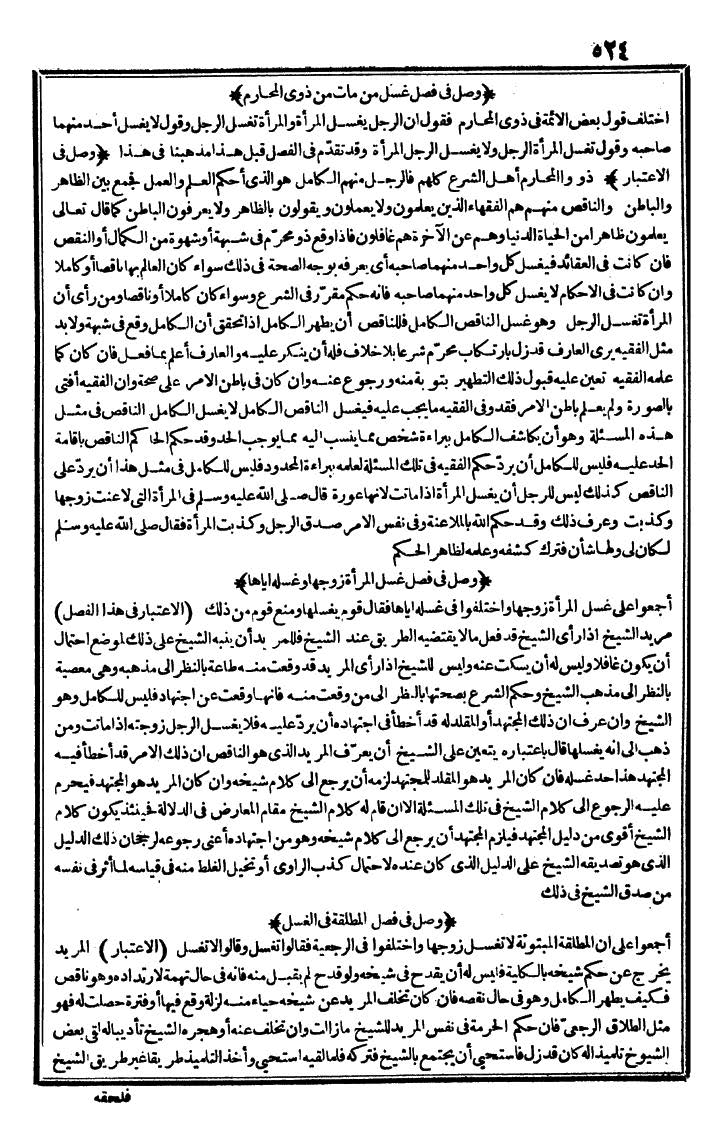 ٥٢٤
﴿وصل فى فصل غسل من مات من ذوى المحارم﴾
اختلف قول بعض الائمة فى ذوى المحارم فقول ان الرجل يغسل المرأة والمرأة تغسل الرجل وقول لا يغسل أحد منهما
صاحبه وقول تغسل المرأة الرجل ولا يغسل الرجل المرأة وقد تقدّم فى الفصل قبل هذا مذهبنا فى هذا ﴿وصل فى
الاعتبار﴾ ذو والمحارم أهل الشرع كلهم فالرجل منهم الكامل هو الذى أحكم العلم والعمل فجمع بين الظاهر
والباطن والناقص منهم هم الفقهاء الذين يعلمون ولا يعملون ويقولون بالظاهر ولا يعرفون الباطن كما قال تعالى
يعلمون ظاهرا من الحياة الدنيا وهم عن الآخرة هم غافلون فاذا وقع ذو محرّم فى شبهة أو شهوة من الكمال أو النقص
فان كانت فى العقائد فيغسل كل واحد منهما صاحبه أى يعرفه بوجه الصحة فى ذلك سواء كان العالم بها ناقصا أو كاملا
وان كانت فى الاحكام لا يغسل كل واحد منهما صاحبه فانه حكم مقرّر فى الشرع وسواء كان كاملا أو ناقصا ومن رأى أن
المرأة تغسل الرجل وهو غسل الناقص الكامل فللناقص أن يطهر الكامل اذا تحقق أن الكامل وقع فى شبهة ولا بد
مثل الفقيه يرى العارف قد زل بارتكاب محرّم شرعا بلا خلاف فله أن ينكر عليه والعارف أعلم بما فعل فان كان كما
علمه الفقيه تعين عليه قبول ذلك التطهير بتوبة منه ورجوع عنه وان كان فى باطن الامر على صحة وان الفقيه أفتى
بالصورة ولم يعلم باطن الامر فقد وفى الفقيه ما يجب عليه فيغسل الناقص الكامل لا يغسل الكامل الناقص فى مثل
هذه المسئلة وهو أن يكاشف الكامل ببراءة شخص مما ينسب اليه مما يوجب الحد وقد حكم الحاكم الناقص باقامة
الحد عليه فليس للكامل أن يردّ حكم الفقيه فى تلك المسئلة لعلمه ببراءة المحدود فليس للكامل فى مثل هذا أن يردّ على
الناقص كذلك ليس للرجل أن يغسل المرأة اذا ماتت لانها عورة قال صلى الله عليه وسلم فى المرأة التى لاعنت زوجها
وكذبت وعرف ذلك وقد حكم الله بالملاعنة وفى نفس الامر صدق الرجل وكذبت المرأة فقال صلى الله عليه وسلم
لكان لى ولها شأن فترك كشفه وعلمه لظاهر الحكم
﴿وصل فى فصل غسل المرأة زوجها وغسله اياها﴾
أجمعوا على غسل المرأة زوجها واختلفوا فى غسله اياها فقال قوم يغسلها ومنع قوم من ذلك (الاعتبار فى هذا الفصل)
مريد الشيخ اذا رأى الشيخ قد فعل ما لا يقتضيه الطريق عند الشيخ فللمريد أن ينبه الشيخ على ذلك لموضع احتمال
أن يكون غافلا وليس له أن يسكت عنه وليس للشيخ اذا رأى المريد قد وقعت منه طاعة بالنظر الى مذهبه وهى معصية
بالنظر الى مذهب الشيخ وحكم الشرع بصحتها بالنظر الى من وقعت منه فانها وقعت عن اجتهاد فليس للكامل وهو
الشيخ وان عرف ان ذلك المجتهد أو المقلد له قد أخطأ فى اجتهاده أن يردّ عليه فلا يغسل الرجل زوجته اذا ماتت ومن
ذهب الى انه يغسلها قال باعتباره يتعين على الشيخ أن يعرّف المريد الذى هو الناقص ان ذلك الامر قد أخطأ فيه
المجتهد هذا حد غسله فان كان المريد هو المقلد للمجتهد لزمه أن يرجع الى كلام شيخه وان كان المريد هو المجتهد فيحرم
عليه الرجوع الى كلام الشيخ فى تلك المسئلة الا ان قام له كلام الشيخ مقام المعارض فى الدلالة فحينئذ يكون كلام
الشيخ أقوى من دليل المجتهد فيلزم المجتهد أن يرجع الى كلام شيخه وهو من اجتهاده أعنى رجوعه لرجحان ذلك الدليل
الذى هو تصديقه الشيخ على الدليل الذى كان عنده لاحتمال كذب الراوى أو تخيل الغلط منه فى قياسه لما أثر فى نفسه
من صدق الشيخ فى ذلك
﴿وصل فى فصل المطلقة فى الغسل﴾
أجمعوا على ان المطلقة المبتوتة لا تغسل زوجها واختلفوا فى الرجعية فقالوا تغسل وقالوا لا تغسل (الاعتبار) المريد
يخرج عن حكم شيخه بالكلية فليس له أن يقدح فى شيخه ولو قدح لم يقبل منه فانه فى حال تهمة لارتداده وهو ناقص
فكيف يطهر الكامل وهو فى حال نقصه فان كان تخلف المريد عن شيخه حياء منه لزلة وقع فيها أو فترة حصلت له فهو
مثل الطلاق الرجعىّ فان حكم الحرمة فى نفس المريد للشيخ ما زالت وان تخلف عنه أو هجره الشيخ تأديبا له اتى بعض
الشيوخ تلميذا له كان قد زل فاستحيى أن يجتمع بالشيخ فتركه فلما لقيه استحيى وأخذ التلميذ طريقا غير طريق الشيخ
فلحقه